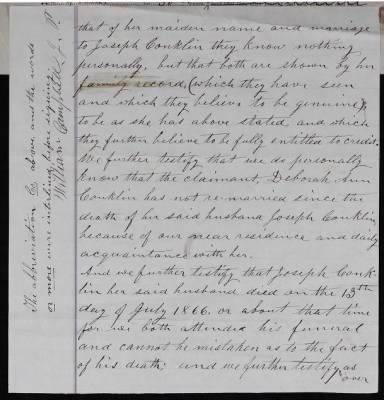 that of her maiden name and marriage
to Joseph Conklin they know nothing
personally, but that both are shown by her
family record, (which they have seen
and which they believe to be genuine),
to be as she has above stated, and which
they further believe to be fully entitled to credit.
We further testify that we do personally
know that the claimant, Deborah Ann
Conklin has not re-married since the
death of her said husband Joseph Conklin,
because of our near residence and daily
acquaintance with her.
And we further testify that Joseph Conk-
lin her said husband died on the 13th
day of July 1866. or about that time
for we both attended his funeral
and cannot be mistaken as to the fact
of his death; and we further testify as
over
The abbreviation Co above and the words
or more were interlined before signing
William Campbell J. P.